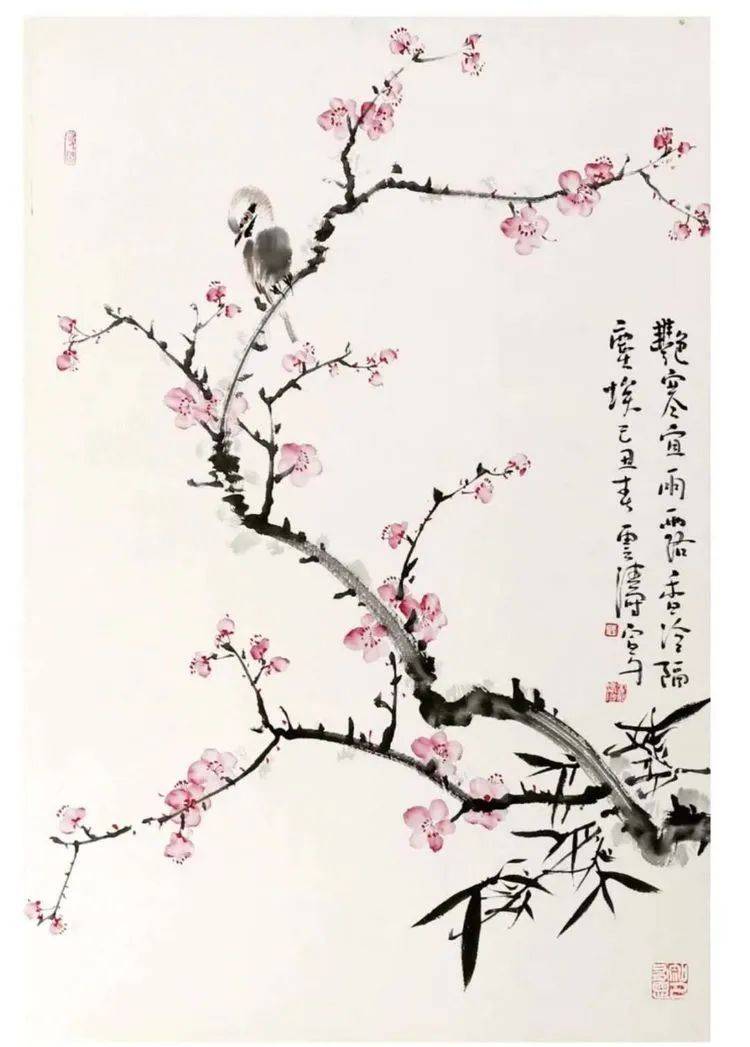 艷寒宜雨露香冷隔
塵埃己丑春雲濤寫